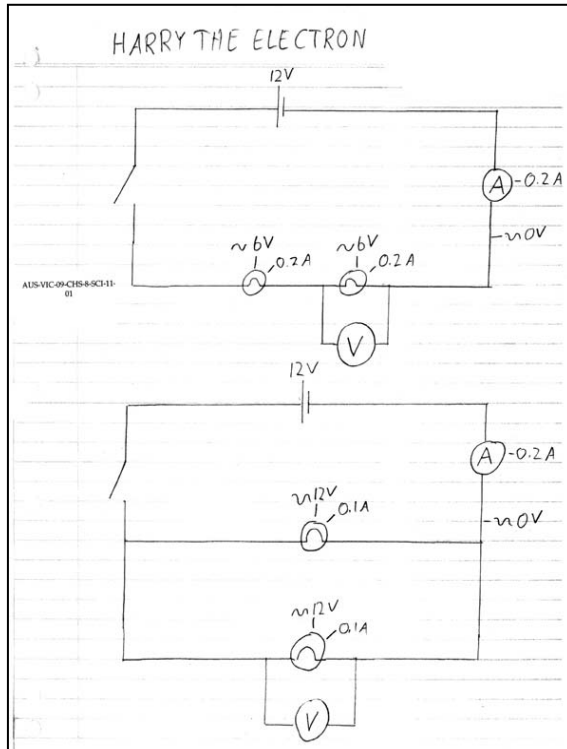 HARRY THE ELECTRON
12V
A -0.2A
~6V
0.2A
~6V
0.2A
~0V
AUS-VIC-09-CHS-8-SCI-11-
01
V
12V
A -0.2A
~12V
0.1A
~0V
~12V
0.1A
V